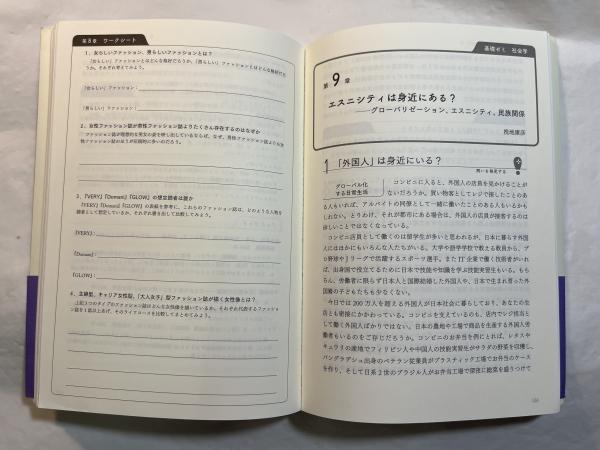 第8章 ワークシート
1、女らしいファッション、男らしいファッションとは？
「女らしい」ファッションとはどんな格好だろうか。「男らしい」ファッションとはどんな格好だろ
うか。それぞれ考えてみよう。
「女らしい」ファッション：
「男らしい」ファッション：
2、女性ファッション誌が男性ファッション誌よりたくさん存在するのはなぜか
ファッション誌が理想的な男女の姿を映し出しているならば、なぜ、男性ファッション誌より女性
ファッション誌のほうが圧倒的に多いのだろう。
3、『VERY』『Domani』『GLOW』の想定読者は誰か
『VERY』『Domani』『GLOW』の表紙を参考に、これらのファッション誌は、どのような人物を
読者として想定しているか、それぞれ書き出して比較してみよう。
『VERY』：
『Domani』：
『GLOW』：
4、主婦型、キャリア女性型、「大人女子」型ファッション誌が描く女性像とは？
上記3つのタイプのファッション誌はどんな女性像を描いているか。それぞれ代表するファッショ
ン誌を1誌以上あげ、そのライフコースを比較してまとめてみよう。
基礎ゼミ 社会学
第9章
エスニシティは身近にある？
——グローバリゼーション、エスニシティ、民族関係
挽地康彦
1 「外国人」は身近にいる？
問いを発見する
グローバル化
する日常生活
コンビニに入ると、外国人の店員を見かけることが
ないだろうか。買い物客としてレジで接したことのあ
る人もいれば、アルバイトの同僚として一緒に働いたことのある人もいるかも
しれない。とりわけ、それが都市にある場合は、外国人の店員が接客するのは
珍しいことではなくなっている。
コンビニ店員として働くのは留学生が多いと思われるが、日本に暮らす外国
人にはほかにもいろんな人たちがいる。大学や語学学校で教える教員から、プ
ロ野球やJリーグで活躍するスポーツ選手。またIT企業で働く技術者がいれ
ば、出身国で役立てるために日本で技能や知識を学ぶ技能実習生もいる。もち
ろん、労働者に限らず日本人と国際結婚した外国人や、日本で生まれ育った外
国籍の子どもたちも少なくない。
今日では200万人を超える外国人が日本社会に暮らしており、あなたの生
活とも密接にかかわっている。コンビニを支えているのも、店内でレジ担当と
して働く外国人ばかりではない。日本の農地や工場で商品を生産する外国人労
働者もいるのをご存じだろうか。コンビニのお弁当を例にとれば、レタスや
キュウリの産地でフィリピン人や中国人の技能実習生がサラダの野菜を収穫し、
バングラデシュ出身のベテラン従業員がプラスティック工場でお弁当のケース
を作り、そして日系2世のブラジル人がお弁当工場で深夜に総菜を盛りつけて